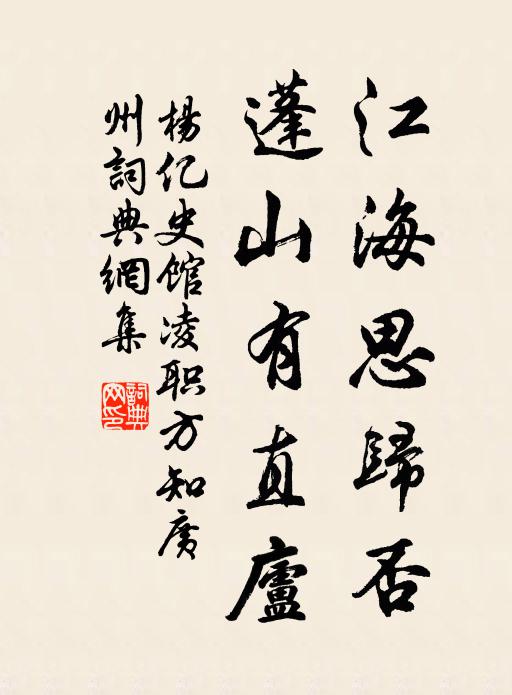 江海思歸否
蓬山有直廬
楊亿史馆凌职方知廣
州詞典網集
詞典网印